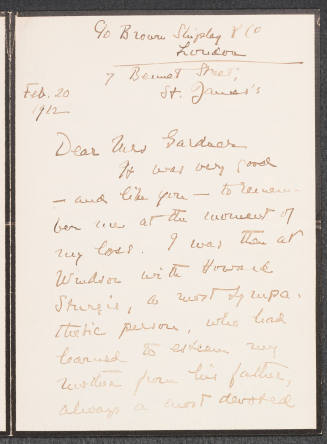 c/o Brown Shipley & Co
London
7 Bennet Street,
St. James's
Feb. 20
1912
Dear Mrs Gardner
It was very good
– and like you – to remem-
ber me at the moment of
my loss. I was then at
Windsor with Howard
Sturgis, a most sympa-
thetic person, who had
learned to esteem my
mother from his father,
always a most devoted